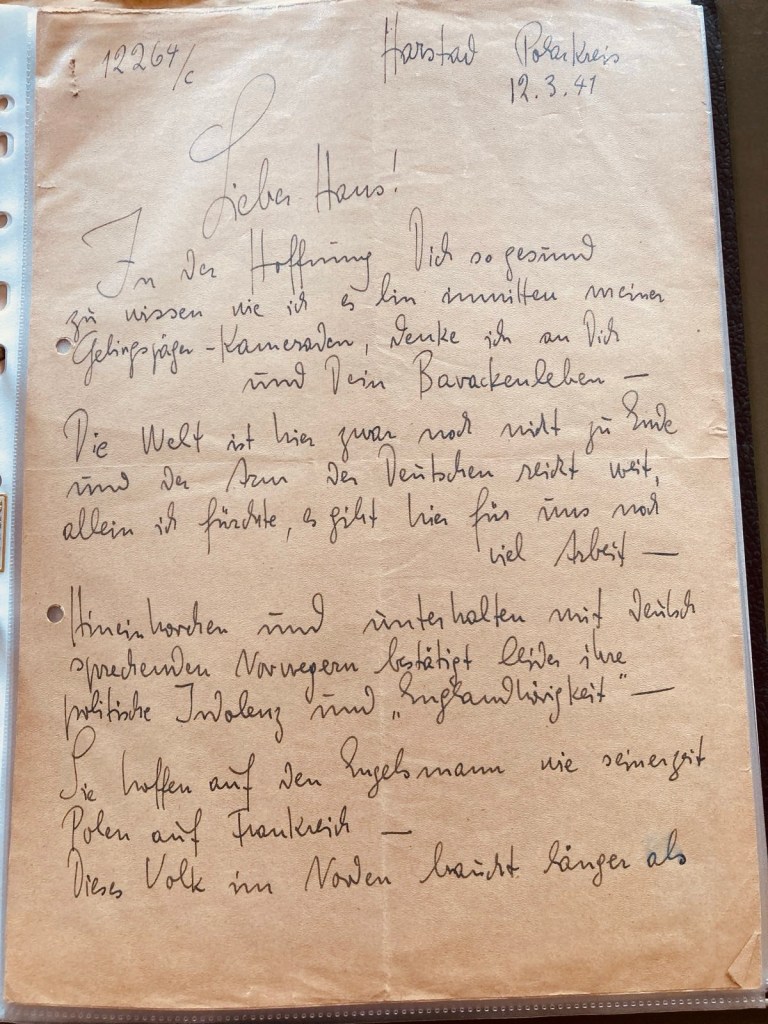 12264/c
Harstad Polarkreis
12.3.41
Lieber Hans!
In der Hoffnung Dich so gesund
zu wissen wie ich es bin inmitten meiner
Gebirgsjäger-Kameraden, denke ich an Dich
und Dein Barackenleben —
Die Welt ist hier zwar noch nicht zu Ende
und der Arm der Deutschen reicht weit,
allein ich fürchte, es gibt hier für uns noch
viel Arbeit —
Hineinhorchen und unterhalten mit deutsch
sprechenden Norwegern bestätigt leider ihre
politische Indolenz und „Englandhörigkeit" —
Sie hoffen auf den Engelsmann wie seinerzeit
Polen auf Frankreich —
Dieses Volk im Norden braucht länger als